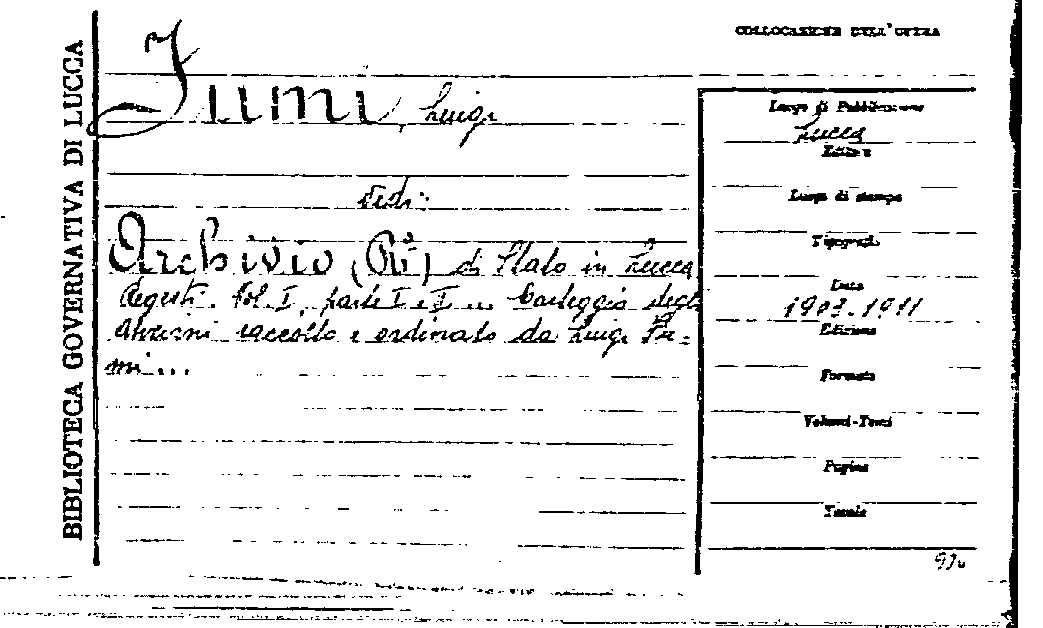 BIBLIOTECA GOVERNATIVA DI LUCCA
COLLOCAZIONE DELL'OPERA
Fumi, Luigi
vedi:
Archivio (R.º) di Stato in Lucca
Regesti. Vol. I, parte I e I... Carteggio degli
Anziani raccolto e ordinato da Luigi Fu=
mi...
Luogo di Pubblicazione
Lucca
Editore
Luogo di stampa
Tipografia
Data
1903-1911
Edizione
Formato
Volumi-Tomi
Pagine
Tavole